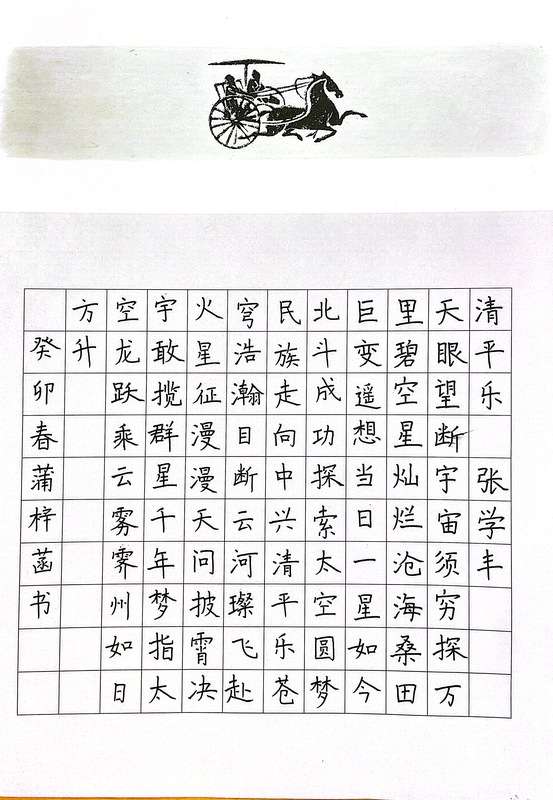 清平乐 张学丰
天眼望断宇宙须穷探万
里碧空星灿烂沧海桑田
巨变遥想当日一星如今
北斗成功探索太空圆梦
民族走向中兴清平乐苍
穹浩瀚目断云河璨飞赴
火星征漫漫天问披霄决
宇敢揽群星千年梦指太
空龙跃乘云雾霁州如日
方升
癸卯春蒲梓菡书